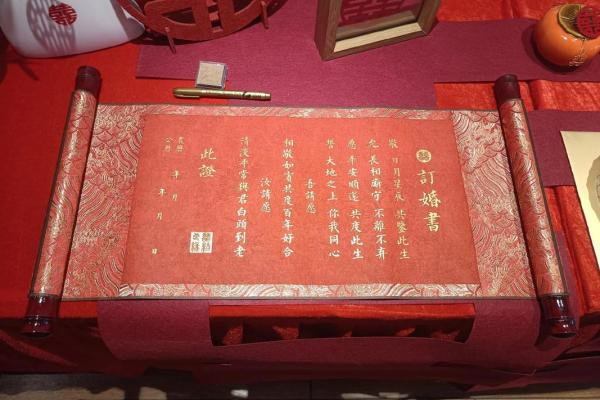 囍
訂婚書
敬 日月星辰 共鑒此生
長相廝守 不離不弃
平安順遂 共度此生
誓 大地之上 你我同心
吾請愿
相敬如賓共度百年好合
汝請愿
清淡平常與君白頭到老
此證
農曆 年 月
公曆 年 月 日